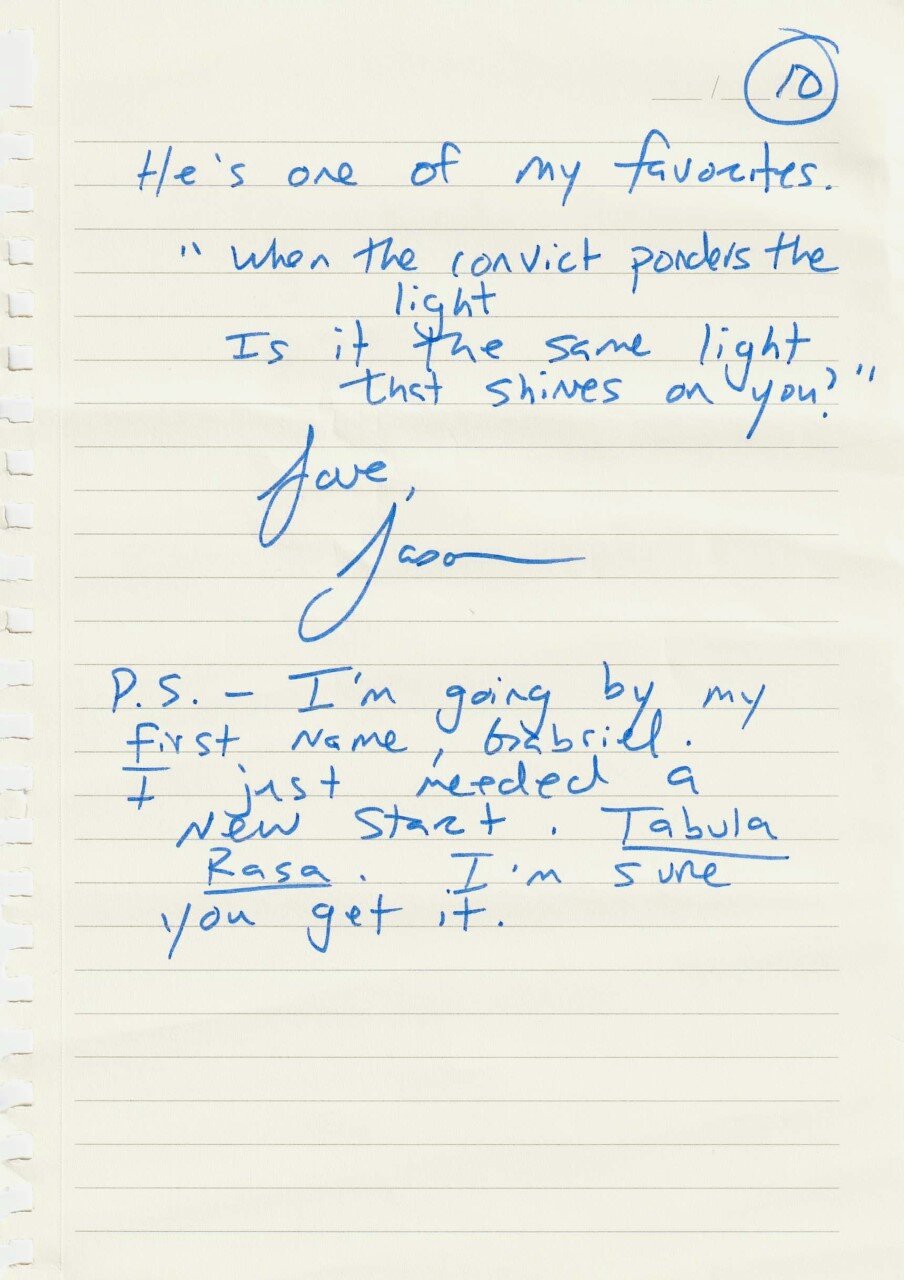 10
He's one of my favorites.
"When the convict ponders the
light
Is it the same light
that shines on you?"
Love,
Jason
P.S. – I'm going by my
first name, Gabriel.
I just needed a
New Start. Tabula
Rasa. I'm sure
you get it.